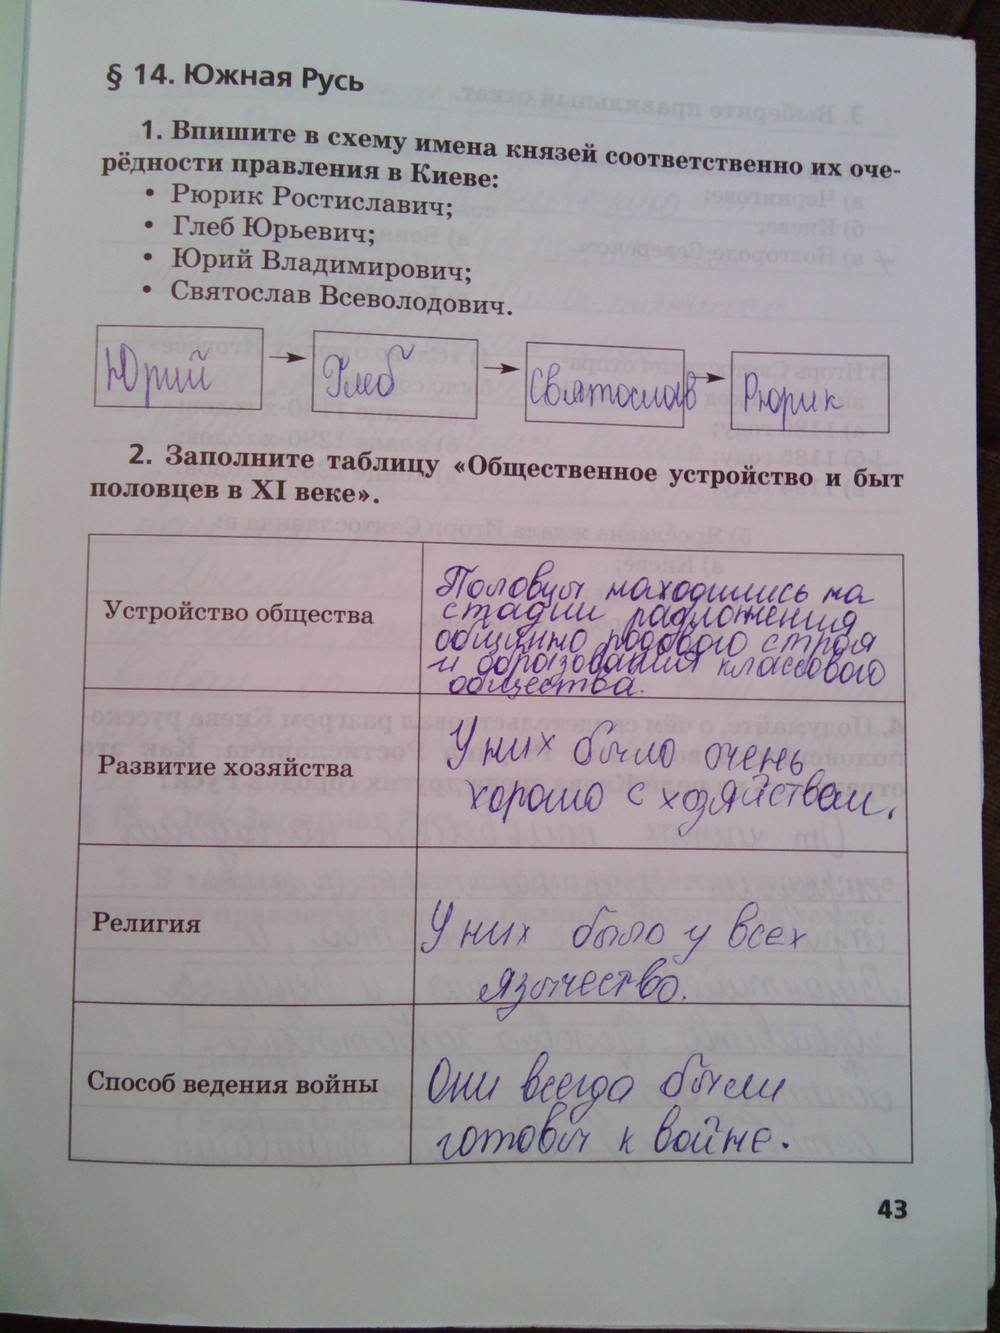 § 14. Южная Русь
1. Впишите в схему имена князей соответственно их оче-
рёдности правления в Киеве:
• Рюрик Ростиславич;
• Глеб Юрьевич;
• Юрий Владимирович;
• Святослав Всеволодович.
Юрий → Глеб → Святослав → Рюрик
2. Заполните таблицу «Общественное устройство и быт
половцев в XI веке».
Устройство общества
Половцы находились на
стадии разложения
общинно родового строя
и образования классового
общества.
Развитие хозяйства
У них было очень
хорошо с хозяйством.
Религия
У них было у всех
язычество.
Способ ведения войны
Они всегда были
готовы к войне.
43